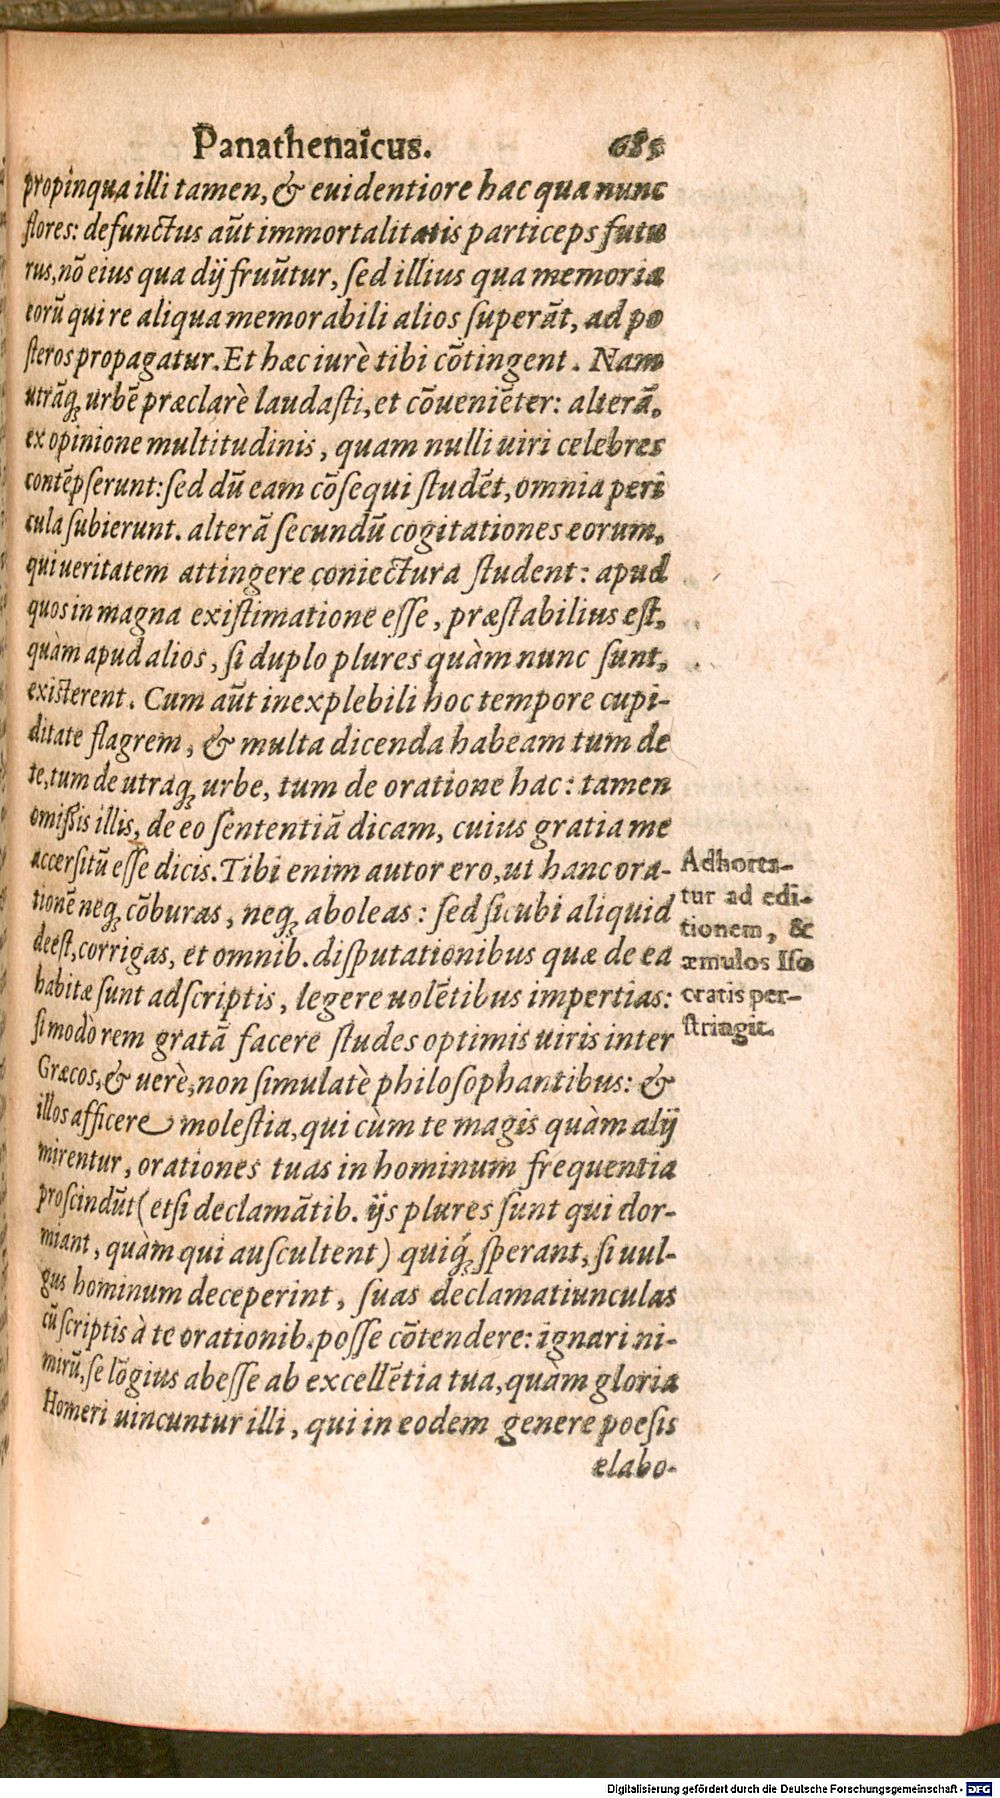 Panathenaicus. 685
propinqua illi tamen, & euidentiore hac qua nunc
flores: defunctus aūt immortalitatis particeps futu
rus, nō eius qua dij fruūtur, ſed illius qua memoria
eorū qui re aliqua memorabili alios ſuperāt, ad po
ſteros propagatur. Et hæc iurè tibi cōtingent. Nam
utrāq; urbē præclarè laudaſti, et cōueniēter: alterā,
ex opinione multitudinis, quam nulli uiri celebres
contēpſerunt: ſed dū eam cōſequi ſtudēt, omnia peri
cula ſubierunt. alterā ſecundū cogitationes eorum,
qui ueritatem attingere coniectura ſtudent: apud
quos in magna exiſtimatione eſſe, præſtabilius eſt,
quàm apud alios, ſi duplo plures quàm nunc ſunt,
exiſterent. Cum aūt inexplebili hoc tempore cupi-
ditate flagrem, & multa dicenda habeam tum de
te, tum de utraq; urbe, tum de oratione hac: tamen
omiſſis illis, de eo ſententiā dicam, cuius gratia me
accerſitū eſſe dicis. Tibi enim autor ero, ut hanc ora-
tionē neq; cōburas, neq; aboleas: ſed ſicubi aliquid
deeſt, corrigas, et omnib. diſputationibus quæ de ea
habitæ ſunt adſcriptis, legere uolētibus impertias:
ſi modò rem gratā facere ſtudes optimis uiris inter
Græcos, & uerè, non ſimulatè philoſophantibus: &
illos afficere moleſtia, qui cùm te magis quàm alij
mirentur, orationes tuas in hominum frequentia
proſcindūt (etſi declamātib. ijs plures ſunt qui dor-
miant, quàm qui auſcultent) quiq́; ſperant, ſi uul-
gus hominum deceperint, ſuas declamatiunculas
cū ſcriptis à te orationib. poſſe cōtendere: ignari ni-
mirū, ſe lōgius abeſſe ab excellētia tua, quàm gloria
Homeri uincuntur illi, qui in eodem genere poeſis
elabo-
Adhorta-
tur ad edi-
tionem, &
æmulos Iſo
cratis per-
ſtringit.
Digitalisierung gefördert durch die Deutsche Forschungsgemeinschaft - DFG